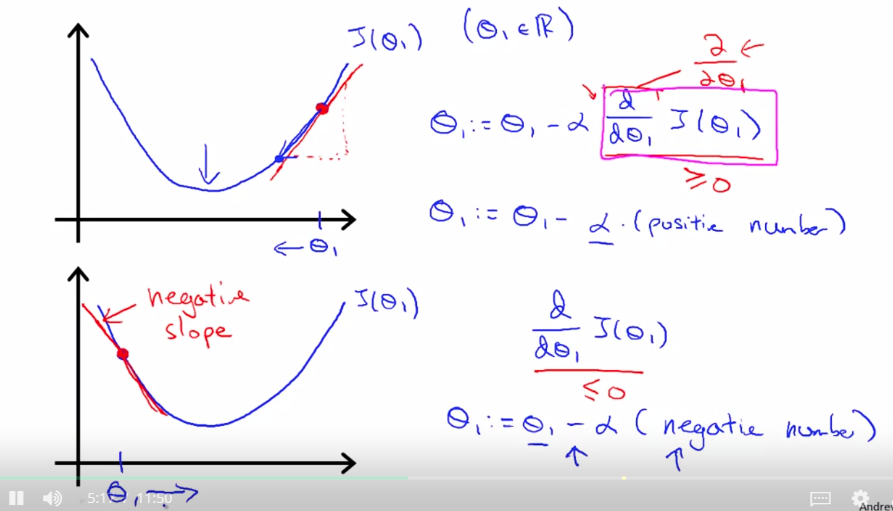 J(θ₁) (θ₁ ∈ ℝ)
∂/∂θ₁
θ₁ := θ₁ - α d/dθ₁ J(θ₁)
≥ 0
θ₁ := θ₁ - α · (positive number)
← θ₁
negative
slope
J(θ₁)
d/dθ₁ J(θ₁)
≤ 0
θ₁ := θ₁ - α (negative number)
θ₁
11:50
Andrew